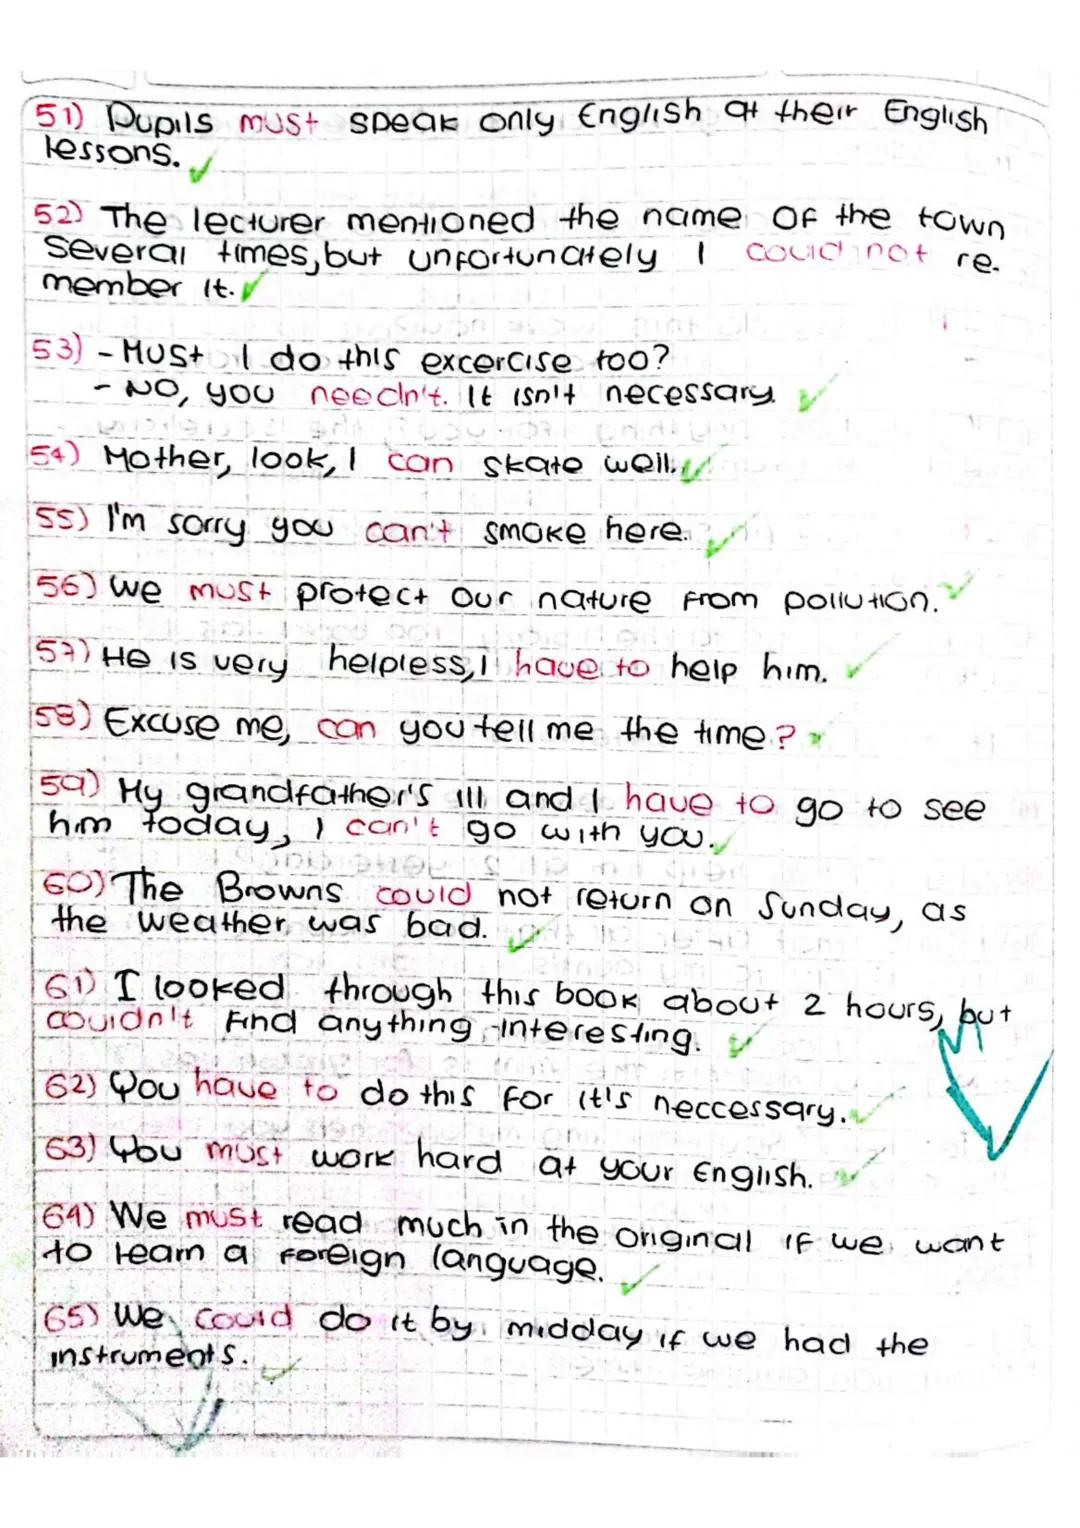 51) Pupils must speak only English at their English
lessons.
52) The lecturer mentioned the name of the town
several times, but unfortunately I could not re-
member it.
53) - Must I do this excercise too?
- No, you needn't. It isn't necessary.
54) Mother, look, I can skate well.
55) I'm sorry you can't smoke here.
56) We must protect our nature from pollution.
57) He is very helpless, I have to help him.
58) Excuse me, can you tell me the time?
59) My grandfather's ill and I have to go to see
him today, I can't go with you.
60) The Browns could not return on Sunday, as
the weather was bad.
61) I looked through this book about 2 hours, but
couldn't find anything interesting.
62) You have to do this for it's neccessary.
63) You must work hard at your English.
64) We must read much in the original if we want
to learn a foreign language.
65) We could do it by midday if we had the
instruments.